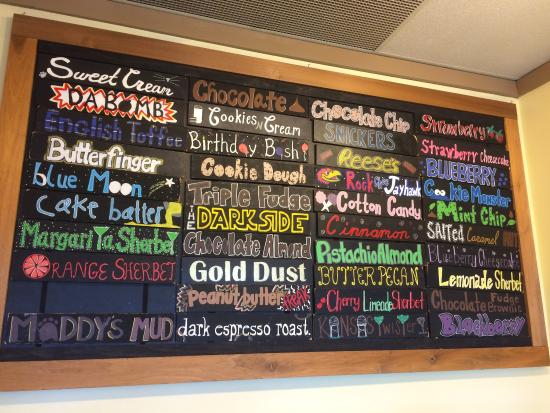 Sweet Cream
DA BOMB
English Toffee
Butterfinger
blue Moon
cake batter
Margarita Sherbet
ORANGE SHERBET
MADDY'S MUD
Chocolate
Cookies N Cream
Birthday Bash
Cookie Dough
Triple Fudge
THE DARKSIDE
Chocolate Almond
Gold Dust
Peanut butter
dark espresso roast
Chocolate Chip
SNICKERS
Reese's
Rock Jayhawk
Cotton Candy
Cinnamon
Pistachio Almond
BUTTER PECAN
Cherry Limeade Sherbet
KANSAS Twister
Strawberry
Strawberry cheesecake
BLUEBERRY
Cookie Monster
Mint Chip
SALTED Caramel
Blueberry Cheesecake
Lemonade Sherbet
Chocolate Fudge Brownie
Blackberry